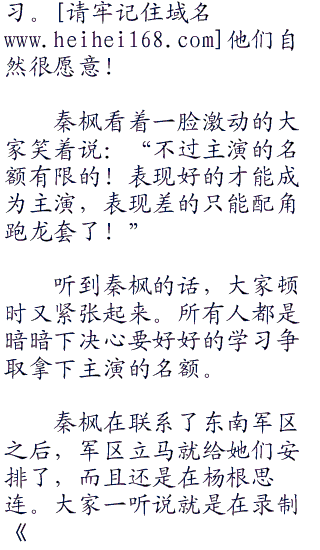 习。[请牢记住域名
www.heihei168.com]他们自
然很愿意!
秦枫看着一脸激动的大
家笑着说：“不过主演的名
额有限的！表现好的才能成
为主演，表现差的只能配角
跑龙套了！”
听到秦枫的话，大家顿
时又紧张起来。所有人都是
暗暗下决心要好好的学习争
取拿下主演的名额。
秦枫在联系了东南军区
之后，军区立马就给她们安
排了，而且还是在杨根思
连。大家一听说就是在录制
《